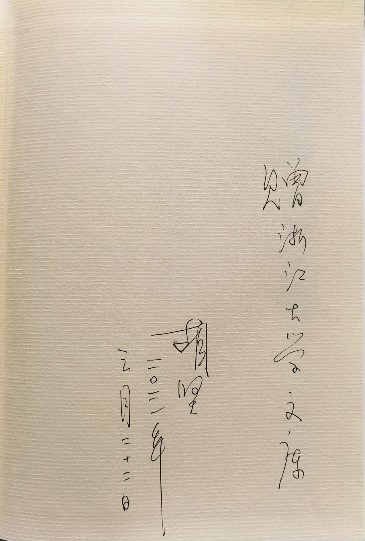 赠浙江大学文库
二〇二二年
三月二十二日